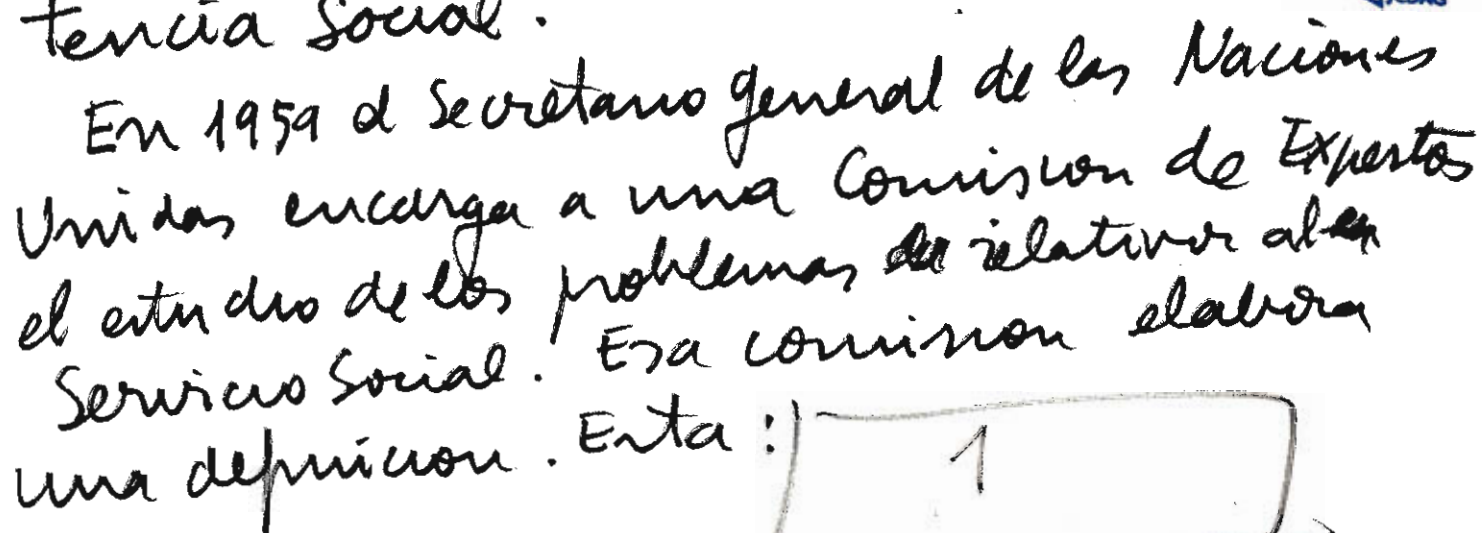 tencia Social.
En 1959 el Secretario general de las Naciones
Unidas encarga a una Comision de Expertos
el estudio de los problemas relativos al
Servicio Social. Esa comision elabora
una definicion. Esta:
1